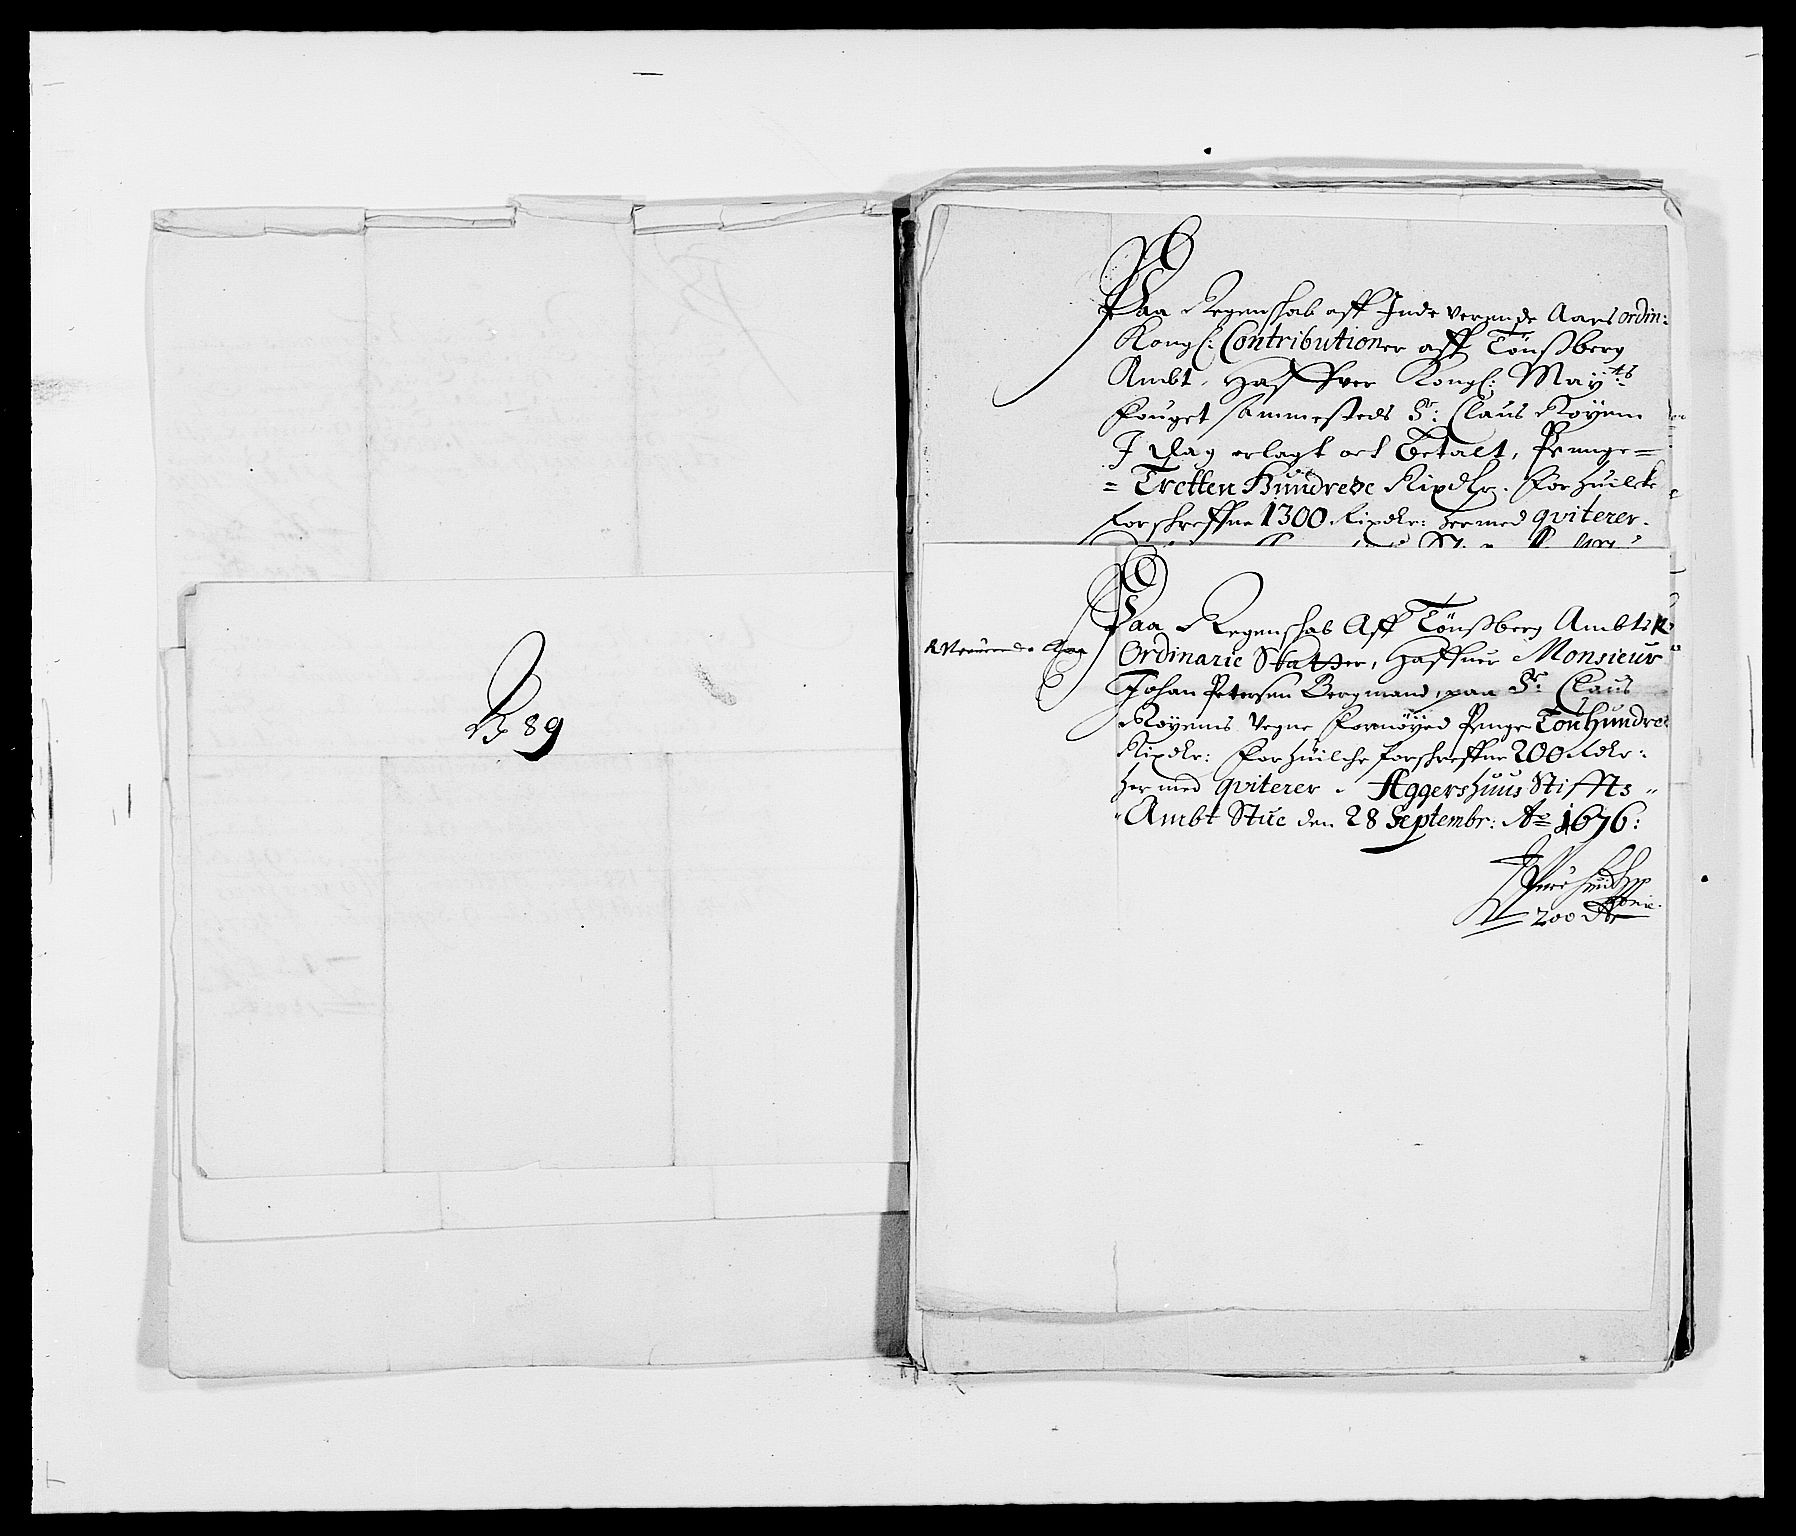 89
Paa Regenschab aff Inde verende Aars ordin:
Kongl: Contributioner aff Tönßberg
Ambt, Haffver Kongl: May:ts
Fouget sammesteds Sr: Claus Röyem
I Dag erlagt och Betalt, Penge =
= Tretten Hundrede Rixdlr. for huilcke
forschreffne 1300 Rixdlr: hermed qviterer.
Paa Regenschab Aff Tönßberg Ambts
Ordinarie Skatter, Haffuer Monsieur
Johan Petersen Bergmand, paa Sr: Claus
Röyems Vegne fornöyed Penge Touhundrede
Rixdlr: for huilche forschreffne 200 Rdlr:
her med qviterer Aggershuus Stiffts
Ambt Stue den 28 Septembr: Ao 1676:
200 dlr